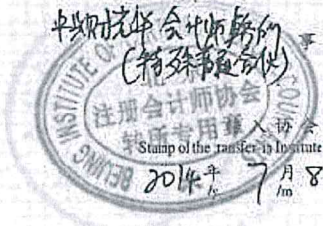 中财光华会计师事务所
(特殊普通合伙)
BEIJING INSTITUTE OF
注册会计师协会
转所专用章 入协会
Stamp of the transfer-in Institute
2014 年 7 月 8
/y /m